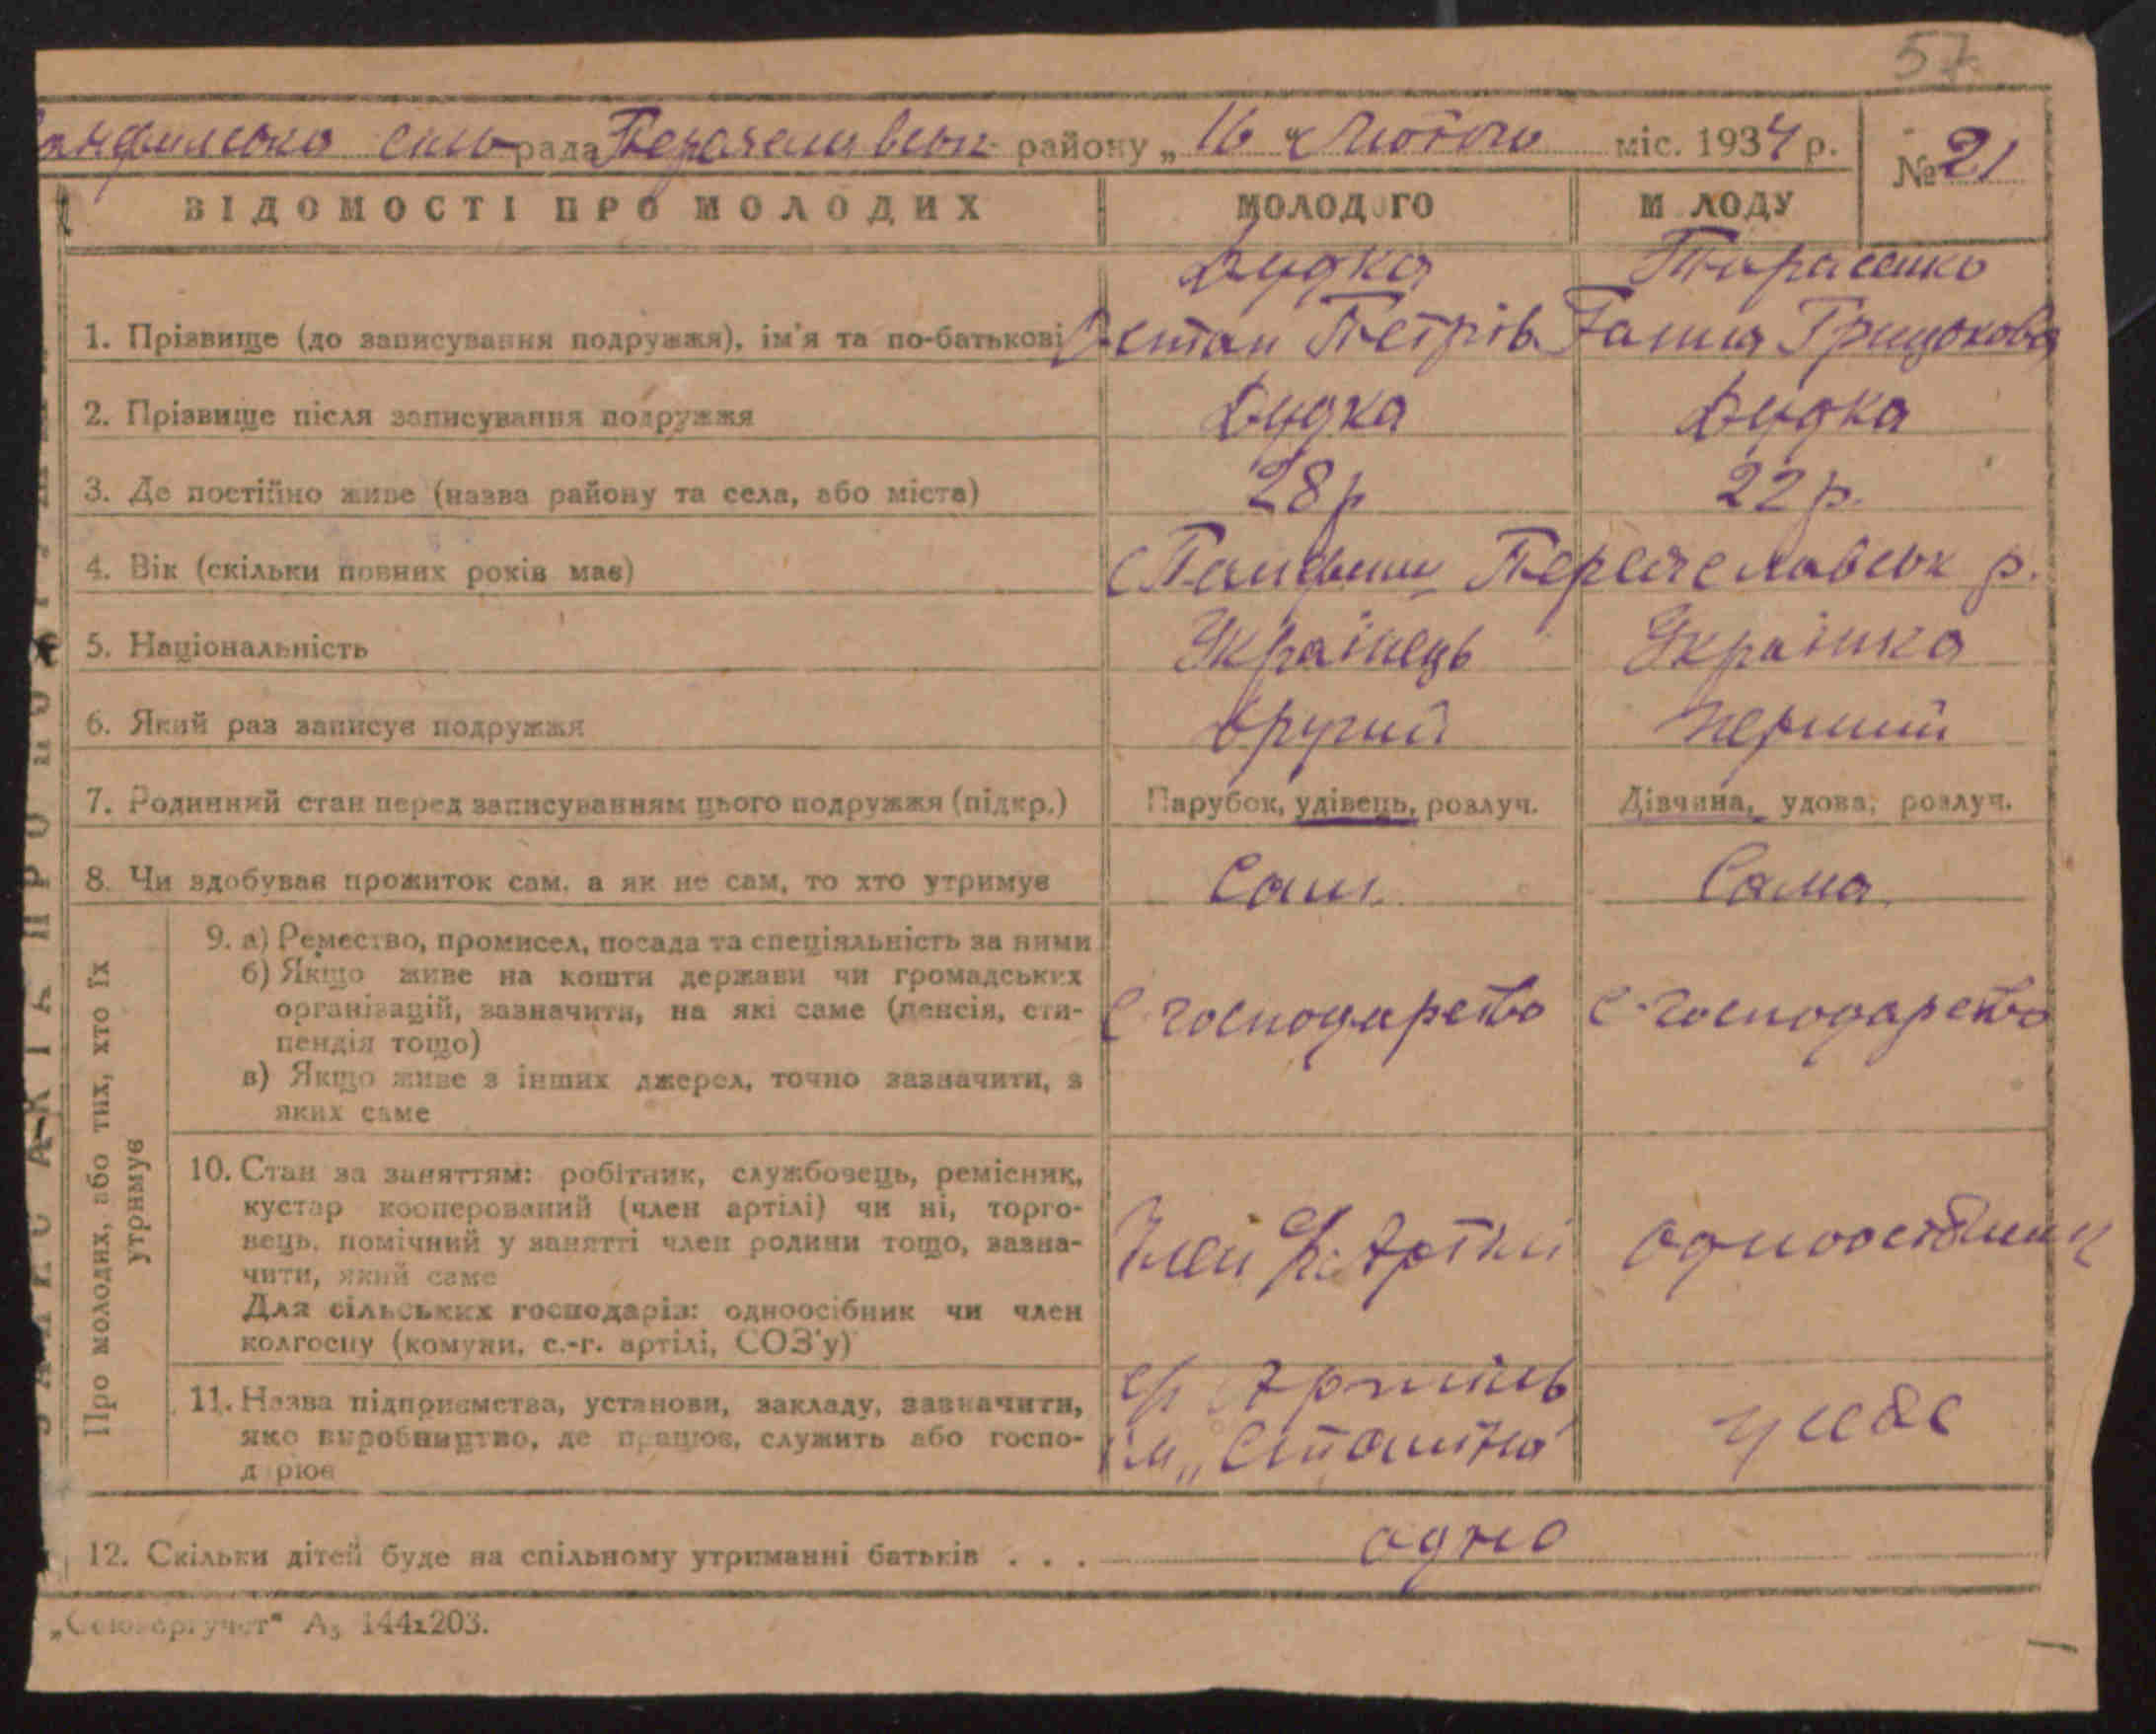 57
сільрада Переяславськ району „16 " Лютого міс. 1934 р.
№ 21
ВІДОМОСТІ ПРО МОЛОДИХ МОЛОДОГО М ЛОДУ
Дудка Тарасенко
1. Прізвище (до записування подружжя), ім'я та по-батькові Остап Петрів Ганна Грицькова
2. Прізвище після записування подружжя Дудка Дудка
3. Де постійно живе (назва району та села, або міста) 28 р 22 р.
4. Вік (скільки повних років має) с Панфили Переяславськ р.
5. Національність Українець Українка
6. Який раз записує подружжя другий перший
7. Родинний стан перед записуванням цього подружжя (підкр.) Парубок, удівець, розлуч. Дівчина, удова, розлуч.
8. Чи здобував прожиток сам, а як не сам, то хто утримує Сам Сама
Про молодих, або тих, хто їх утримує
9. а) Ремество, промисел, посада та спеціяльність за ними
б) Якщо живе на кошти держави чи громадських
організацій, зазначити, на які саме (пенсія, сти-
пендія тощо)
с господарство с-господарство
в) Якщо живе з інших джерел, точно зазначити, з
яких саме
10. Стан за заняттям: робітник, службовець, ремісник,
кустар кооперований (член артілі) чи ні, торго-
вець, помічний у занятті член родини тощо, зазна-
чити, який саме
Для сільських господарів: одноосібник чи член
колгоспу (комуни, с.-г. артілі, СОЗ'у)
Член Артілі одноосібник
11. Назва підприємства, установи, закладу, зазначити,
яке виробництво, де працює, служить або госпо-
д рює
Артіль
ім „Сталіна" у себе
12. Скільки дітей буде на спільному утриманні батьків . . . одно
„Союзоргучет" А₅ 144х203.